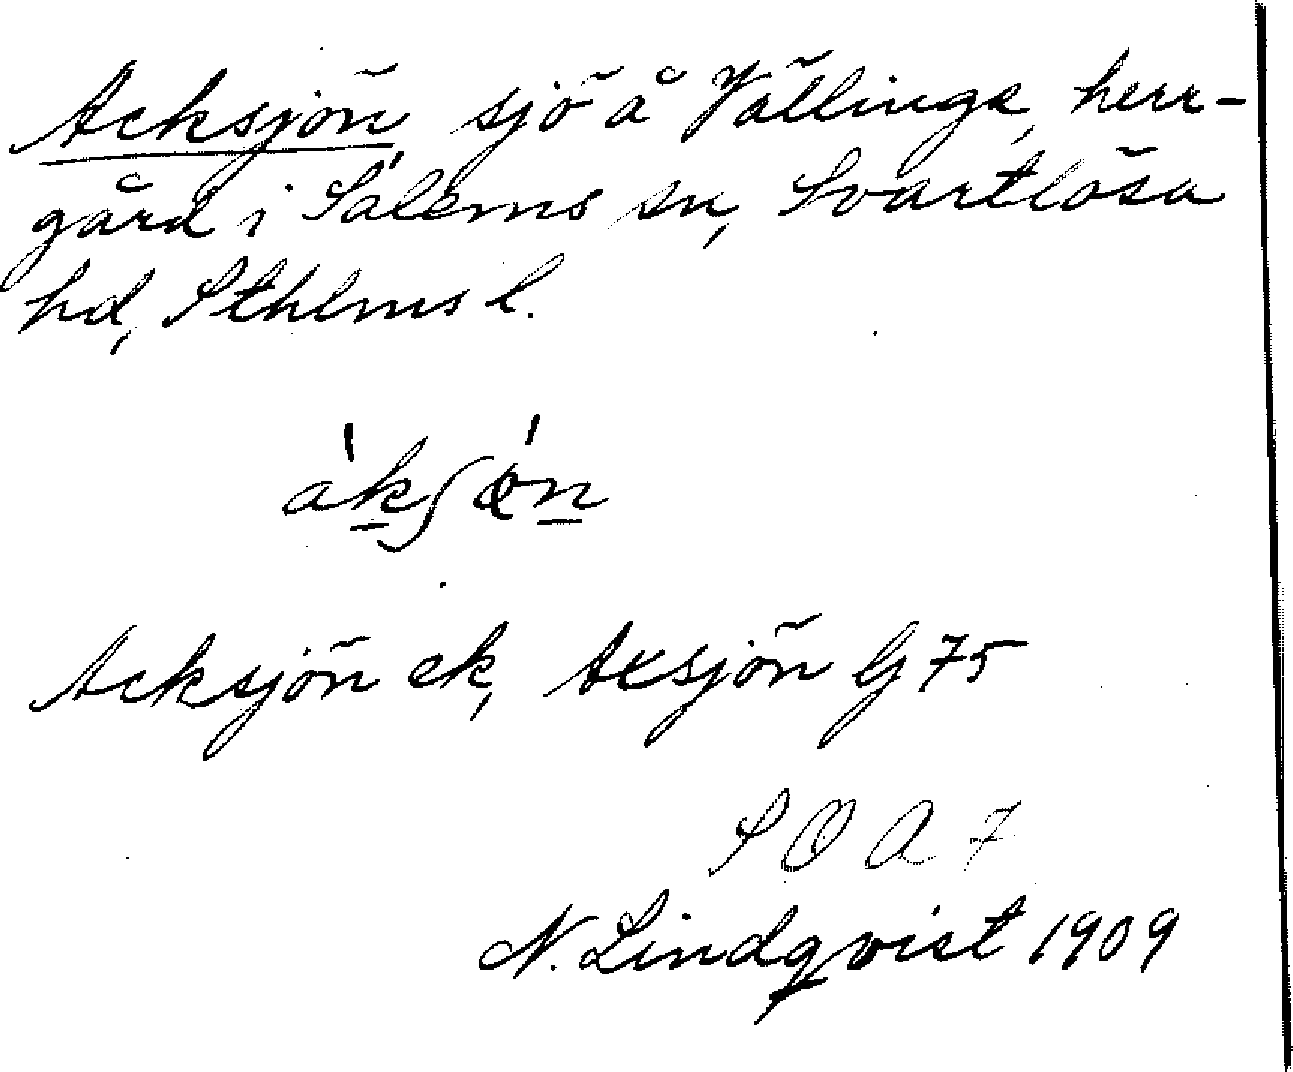 Acksjön sjö å Vällinge, herr-
gård i Salems sn, Svartlösa
hd, Sthlms l.
Acksjön ek, Axsjön Gj 75
SOA 7
N. Lindqvist 1909